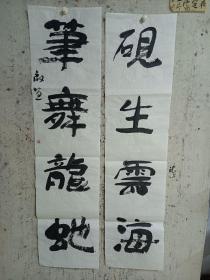 硯生雲海
筆舞龍蛇